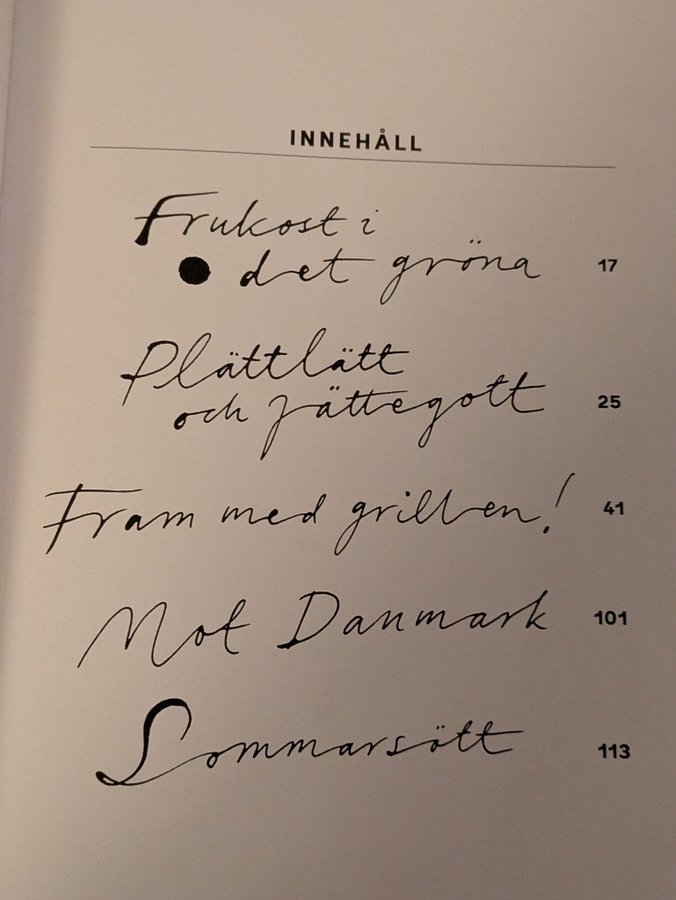 INNEHÅLL
Frukost i
det gröna 17
Plättlätt
och jättegott 25
Fram med grillen! 41
Mot Danmark 101
Sommarsött 113